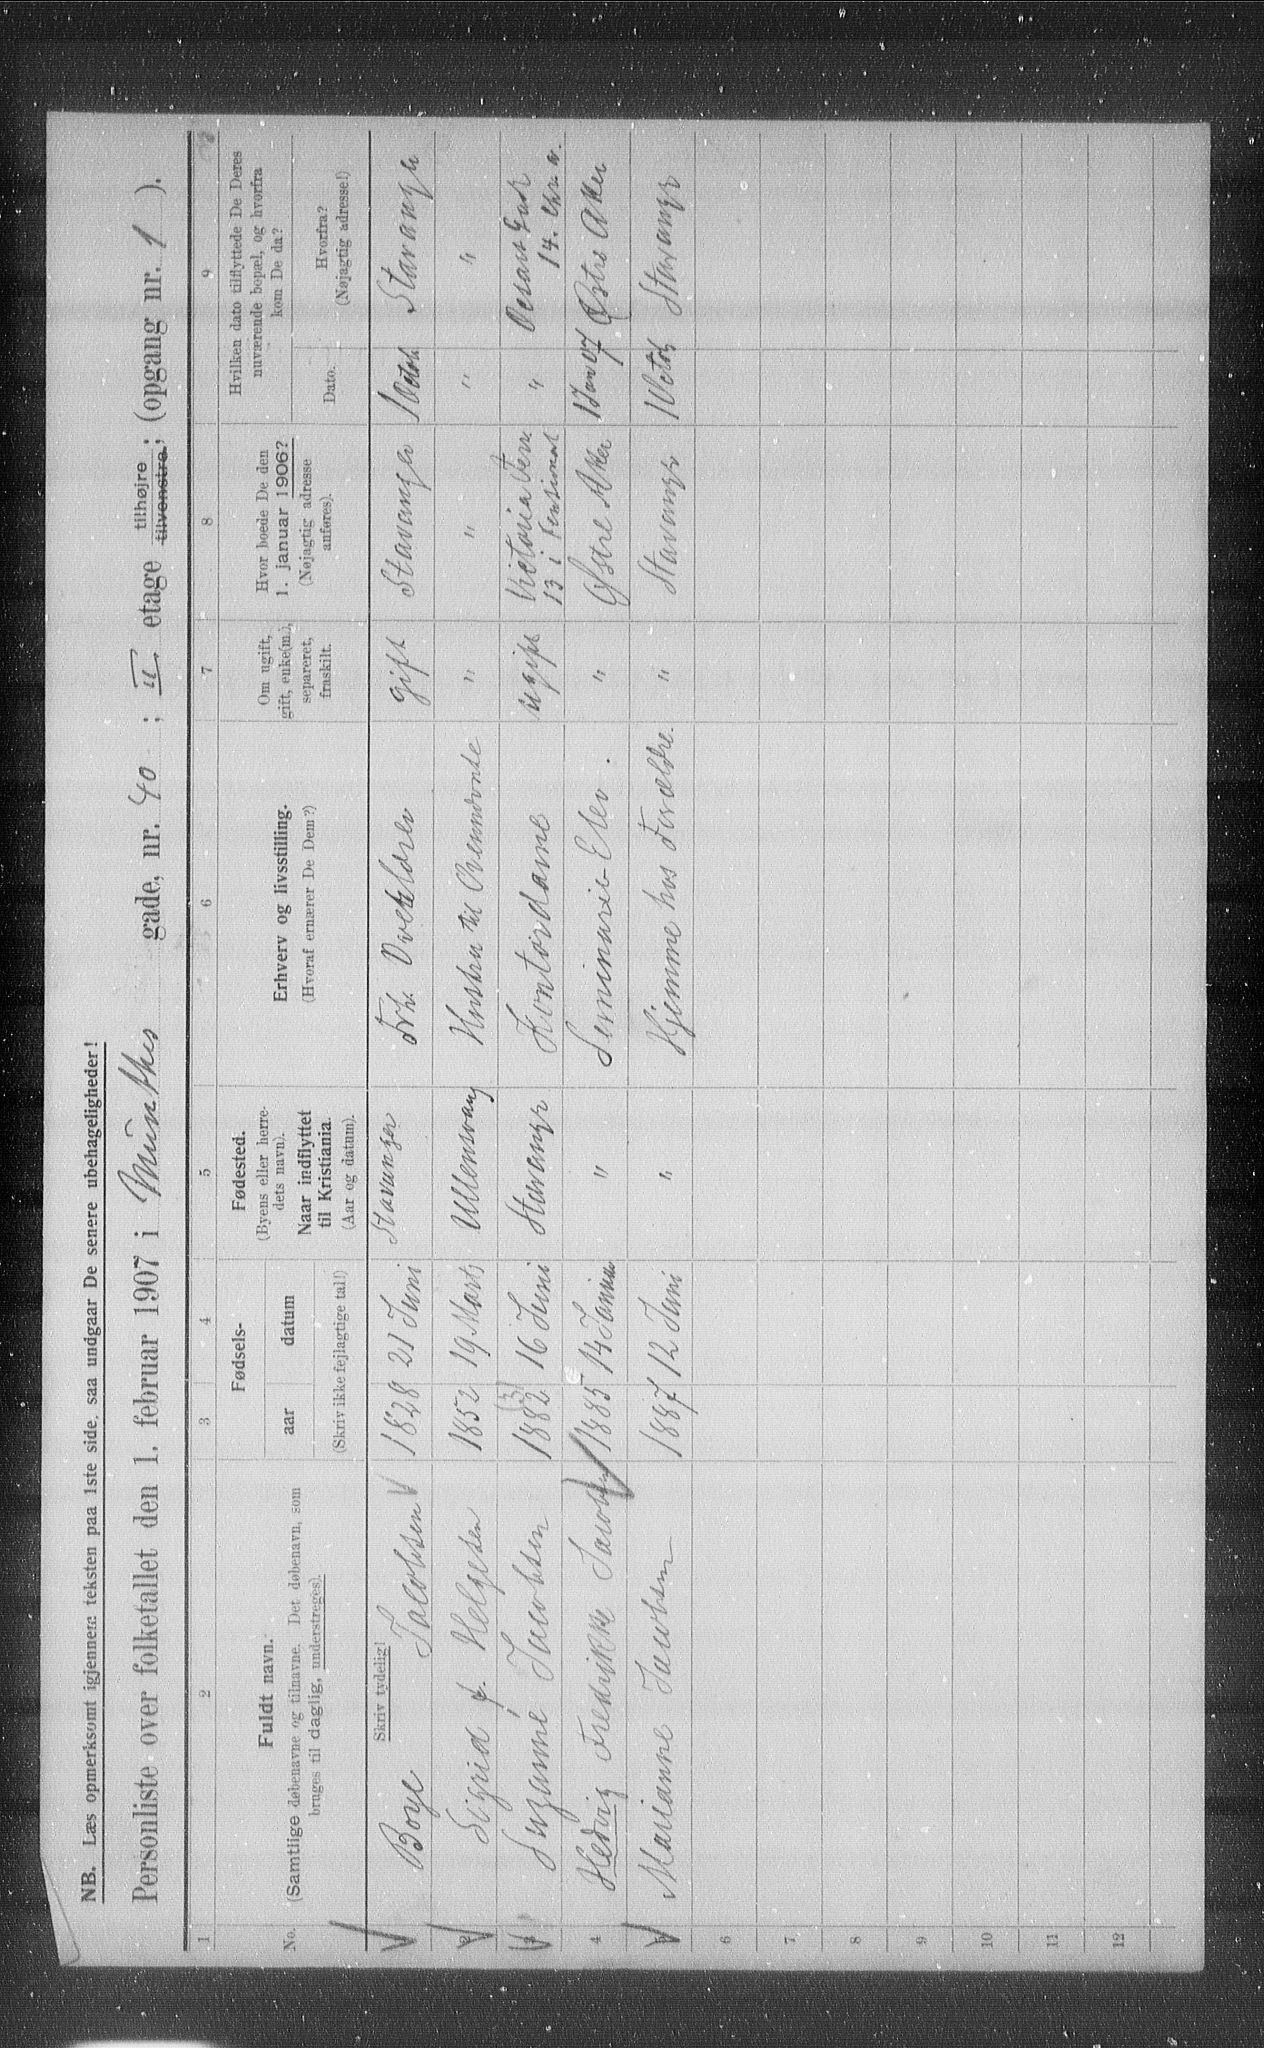 NB. Læs opmerksomt igjennem teksten paa 1ste side, saa undgaar De senere ubehageligheder!
Personliste over folketallet den 1. februar 1907 i Munthes gade, nr. 40 ; II. etage tilhøjre tilvenstre; (opgang nr. 1 ).
1 2 3 4 5 6 7 8 9
No.
Fuldt navn.
(Samtlige døbenavne og tilnavne. Det døbenavn, som
bruges til daglig, understreges).
Fødsels-
aar datum
(Skriv ikke fejlagtige tal!)
Fødested.
(Byens eller herre-
dets navn).
Naar indflyttet
til Kristiania.
(Aar og datum).
Erhverv og livsstilling.
(Hvoraf ernærer De Dem?)
Om ugift,
gift, enke(m.),
separeret,
fraskilt.
Hvor boede De den
1. januar 1906?
(Nøjagtig adresse
anføres).
Hvilken dato tilflyttede De Deres
nuværende bopæl, og hvorfra
kom De da?
Dato.
Hvorfra?
(Nøjagtig adresse!)
Skriv tydelig!
Boye Jacobsen 1828 21 Juni Stavanger gift Stavanger 1 Octob. Stavanger
2 Sigrid f. Helgesen 1852 19 Marts Ullensvang Hustru til Ovennævnte " " " "
Suzanne Jacobsen 1882 16 Juni Stavanger Kontordame ugift Victoria Terr. 13 i Pensionat " 14. Chr. a.
4 Hedvig Fredrikke Jacobsen 1885 14 Januar " Seminarie-Elev. " Østre Aker 1 Jan 07 Østre Aker
Marianne Jacobsen 1887 12 Juni " Hjemme hos Forældre. " Stavanger 1 Octob Stavanger
6
7
8
9
10
11
12